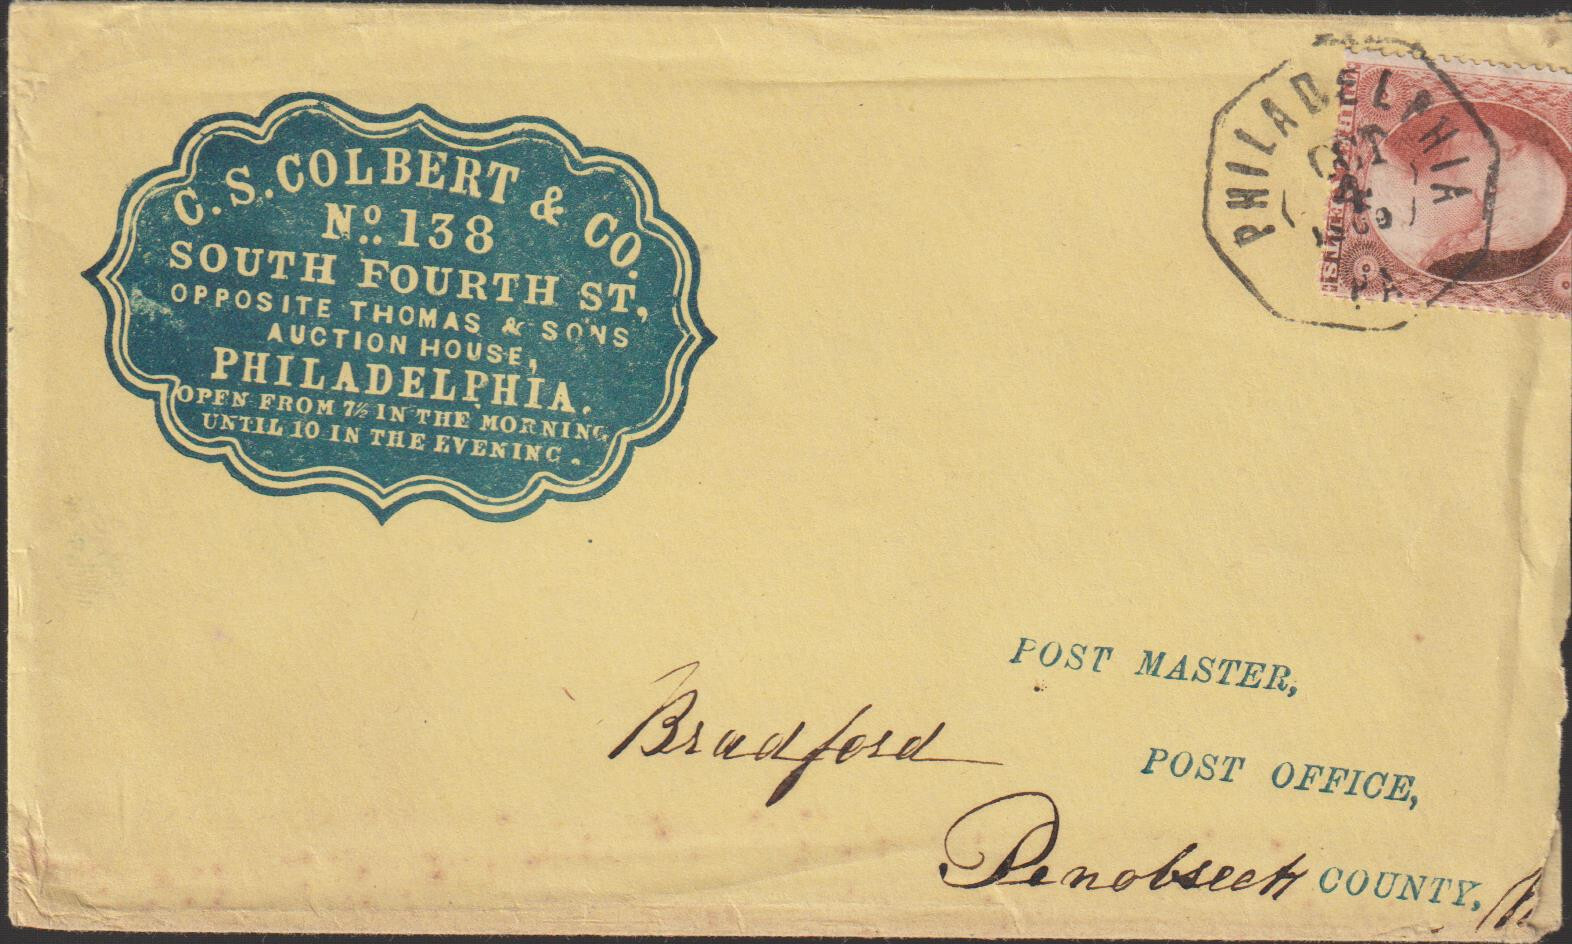 C. S. COLBERT & CO.
No. 138
SOUTH FOURTH ST,
OPPOSITE THOMAS & SONS
AUCTION HOUSE,
PHILADELPHIA.
OPEN FROM 7½ IN THE MORNING
UNTIL 10 IN THE EVENING.
PHILADELPHIA
OCT
PA
POST MASTER,
Bradford
POST OFFICE,
Penobscot COUNTY,